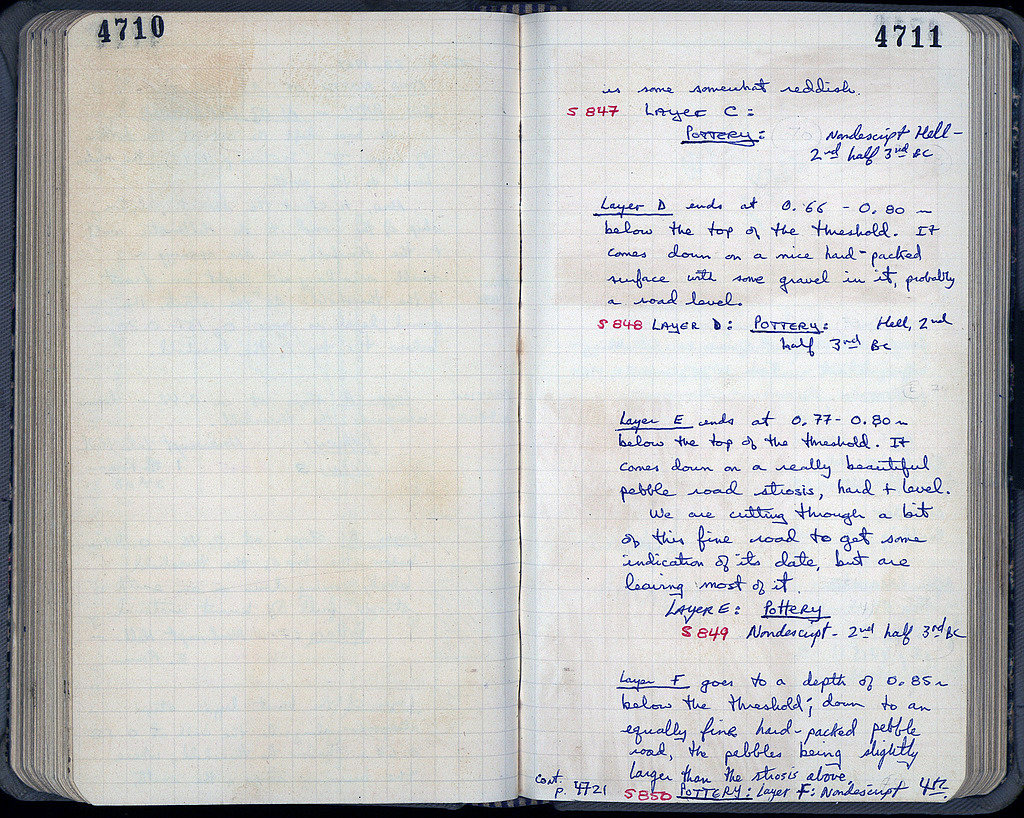 4710
4711
is some somewhat reddish.
S 847 LAYER C:
POTTERY: Nondescript Hell-
2nd half 3rd BC
Layer D ends at 0.66 - 0.80 m
below the top of the threshold. It
comes down on a nice hard-packed
surface with some gravel in it, probably
a road level.
S 848 LAYER D: POTTERY: Hell, 2nd
half 3rd BC
Layer E ends at 0.77 - 0.80 m
below the top of the threshold. It
comes down on a really beautiful
pebble road strosis, hard + level.
We are cutting through a bit
of this fine road to get some
indication of its date, but are
leaving most of it.
LAYER E: POTTERY
S 849 Nondescript - 2nd half 3rd BC
Layer F goes to a depth of 0.85 m
below the threshold; down to an
equally fine hard-packed pebble
road, the pebbles being slightly
larger than the strosis above.
Cont. p. 4721
S 850 POTTERY: Layer F: Nondescript 4th.